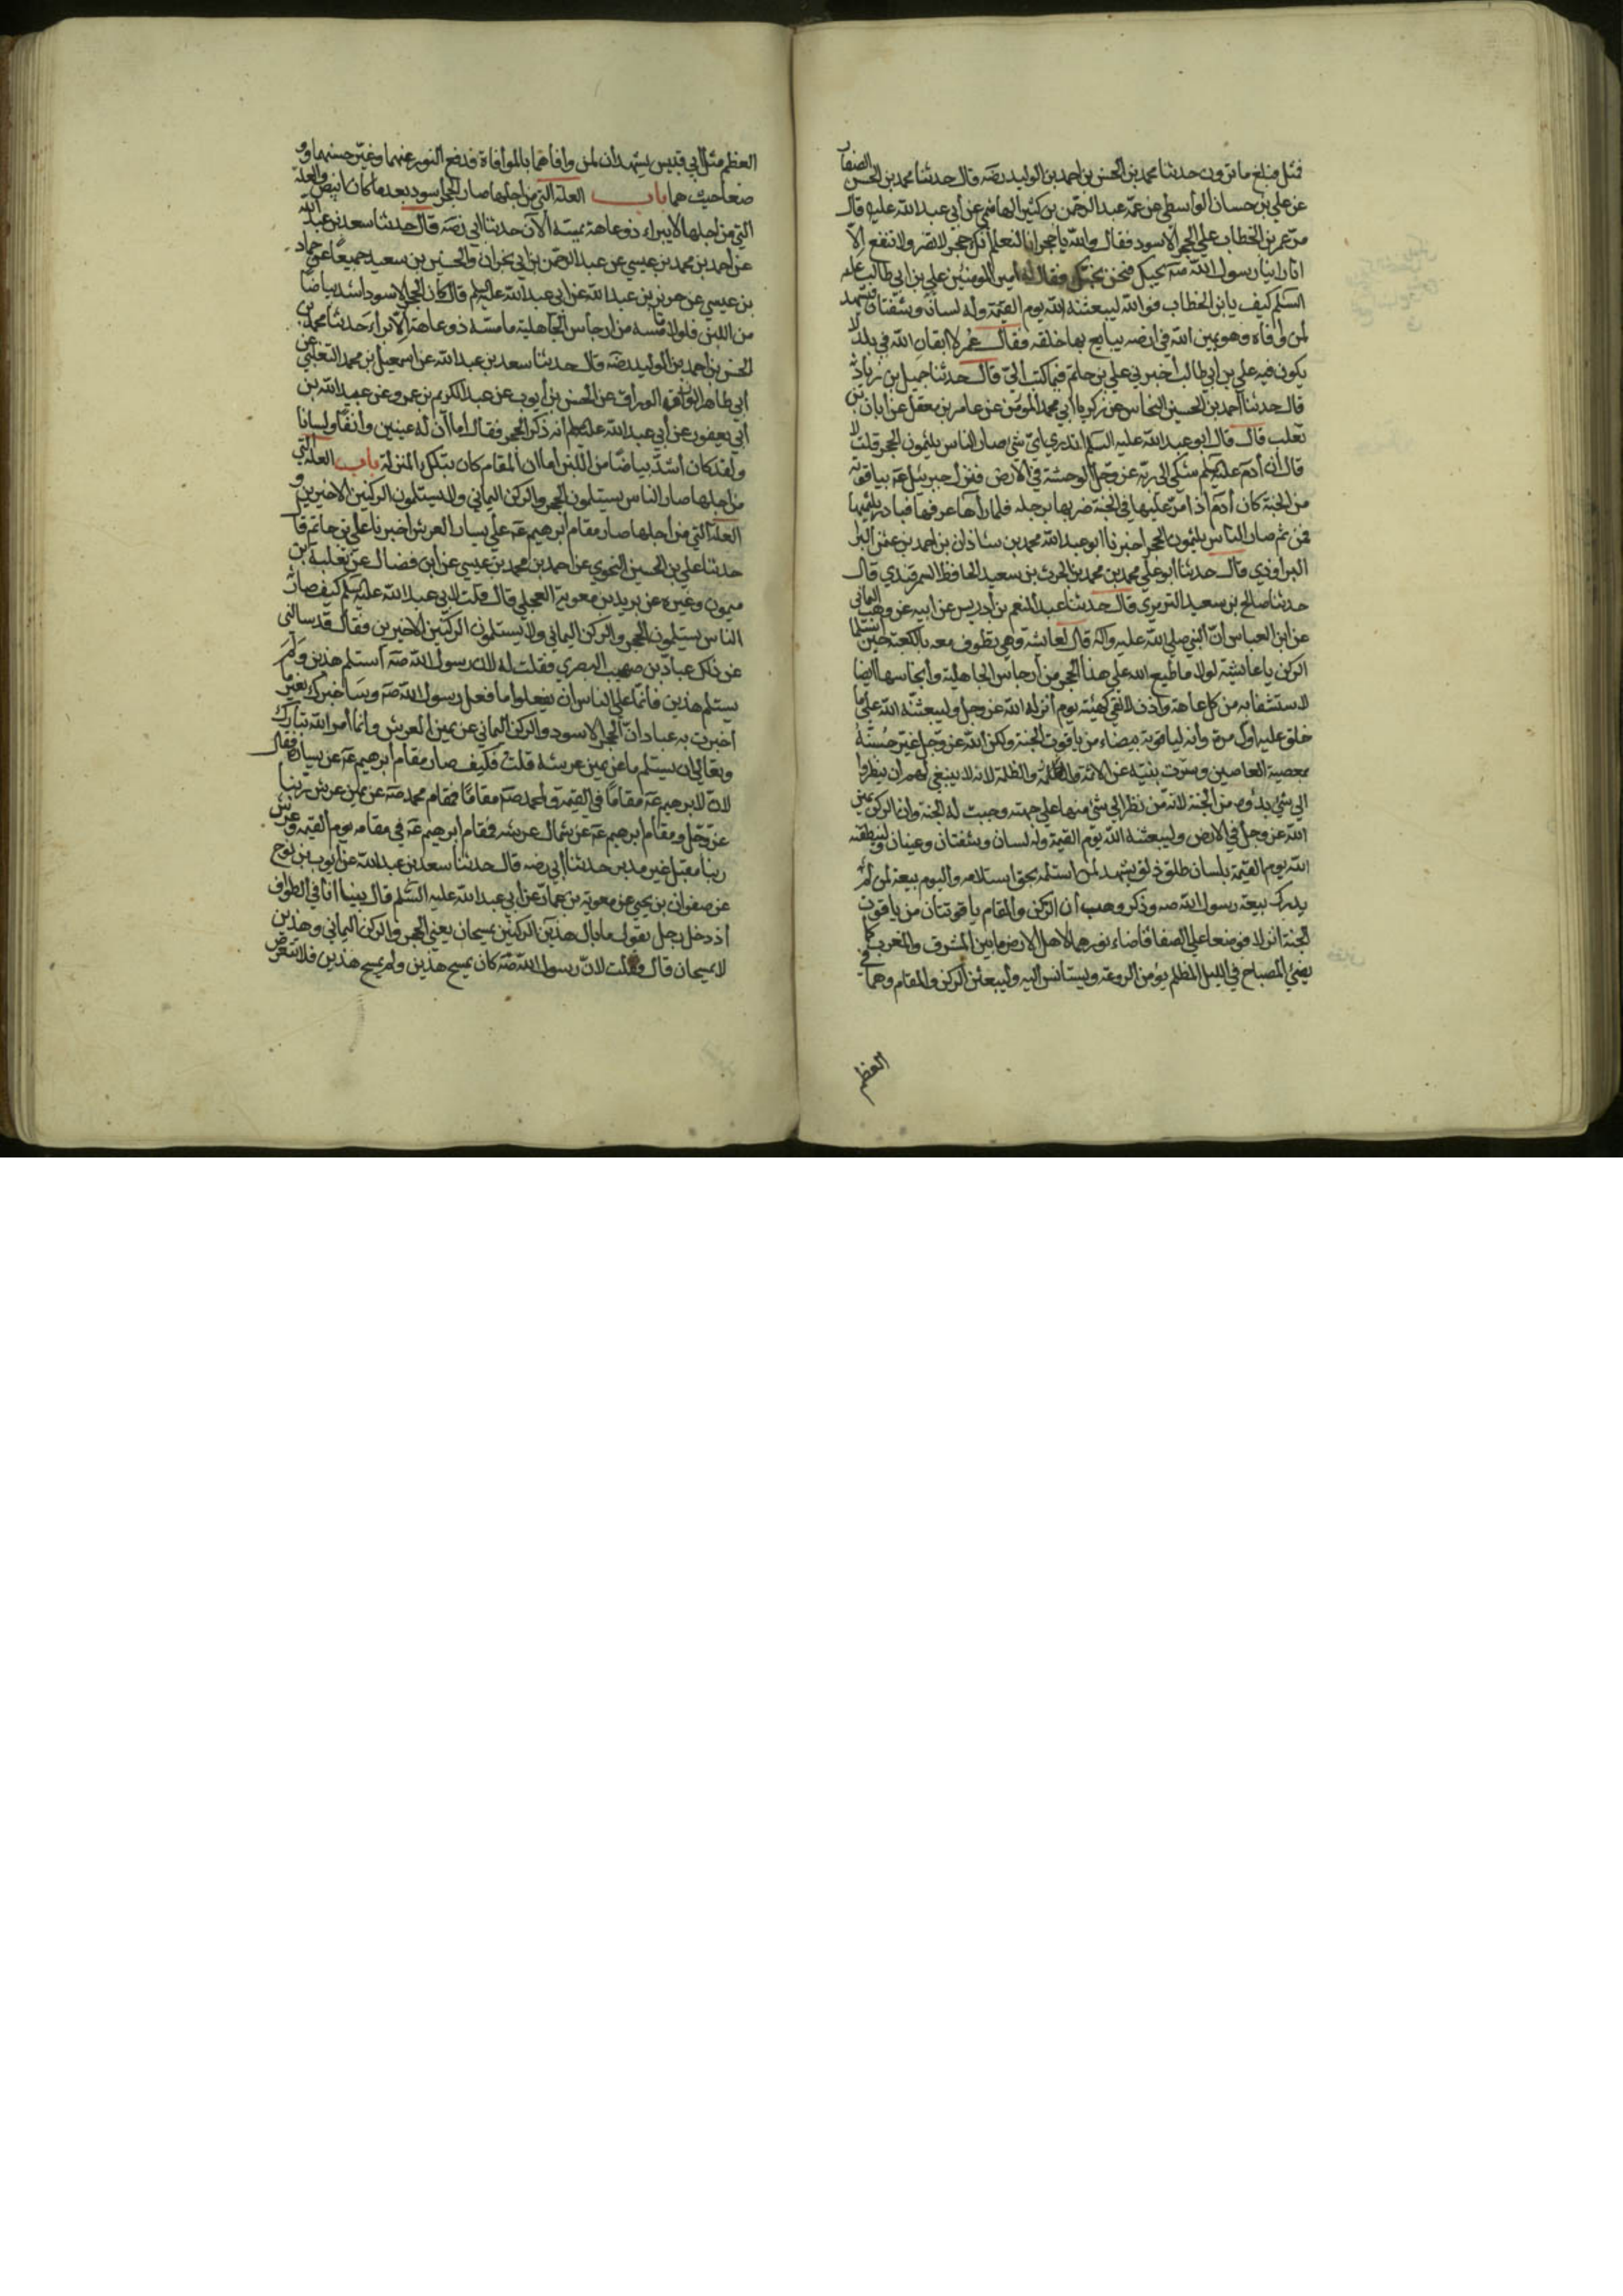 فمثل فبلغ ما ترون حدثنا محمد بن الحسن بن احمد بن الوليد رضه قال حدثنا محمد بن الحسن الصفار
عن علي بن حسان الواسطي عن عمه عبد الرحمن بن كثير الهاشمي عن أبي عبد الله عليه قال
مر عمر بن الخطاب على الحجر الاسود فقال والله يا حجر انا لنعلم انك حجر لا تضر ولا تنفع الا
انا راينا رسول الله صه يحبك فنحن نحبك فقال له أمير المومنين علي بن ابي طالب عليه
السلم كيف يا بن الخطاب فوالله ليبعثنه الله يوم القيمة وله لسان وشفتان فيشهد
لمن وافاه وهو يمين الله في ارضه يبايع بها خلقه فقال عمر لا ابقان الله في بلد لا
يكون فيه علي بن أبي طالب أخبرني علي بن حاتم فيما كتب الي قال حدثنا جميل بن زياد
قال حدثنا أحمد بن الحسين النحاس عن زكريا ابي محمد المؤمن عن عامر بن معقل عن أبان بن
تغلب قال قال ابو عبد الله عليه السلم اتدري لاي شي صار الناس يلثمون الحجر قلت لا
قال ان أدم عليه السلم شكى الى ربه عز وجل الوحشة في الارض فنزل جبرئيل عه بياقوتة
من الجنة كان أدم اذا مر عليها في الجنة ضربها برجله فلما رأها عرفها فبادر يلثمها
فمن ثم صار الناس يلثمون الحجر اخبرنا ابو عبد الله محمد بن شاذان بن احمد بن عثمن البر
البراوذي قال حدثنا ابو علي محمد بن محمد بن الحرث بن سعيد الحافظ السمرقندي قال
حدثنا صالح بن سعيد الترمذي قال حدثنا عبد المنعم بن أدريس عن ابيه عن وهب اليماني
عن ابن العباس ان النبي صلى الله عليه واله قال لعائشة وهي تطوف معه بالكعبة حين استلما
الركن يا عائشة لولا ما طبع الله على هذا الحجر من أرجاس الجاهلية وأنجاسها اذا
لاستشفا به من كل عاهة واذن لالفي كهيئته يوم أنزله الله عز وجل وليبعثنه الله على ما
خلق عليه اول مرة وأنه لياقوتة بيضاء من ياقوت الجنة ولكن الله عز وجل غير حسنه
بمعصية العاصين وسترت بنيته عن الائمة والظلمة لانه لا ينبغي لهم ان ينظروا
الى شئ بدؤه من الجنة لانه من نظر الى شئ منها على جهته وجبت له الجنة وان الركن يمين
الله عز وجل في الارض وليبعثنه الله يوم القيمة وله لسان وشفتان وعينان ولينطقنه
الله يوم القيمة بلسان طلق ذلق يشهد لمن استلمه بحق استلامه واليوم بيعة لمن لم
يدرك بيعة رسول الله صه وذكر وهب أن الركن والمقام ياقوتتان من ياقوت
الجنة انزلا فوضعا على الصفا فاضاء نورهما لاهل الارض ما بين المشرق والمغرب كما
يضئ المصباح في الليل المظلم يؤمن الروعة ويستانس اليه وليبعثن الركن والمقام وهما في
العظم
العظم مثل ابي قبيس يشهدان لمن وافاهما بالموافاة فدفع النور عنهما وغير حسنهما و
وضعا حيث هما باب العلة التي من اجلها صار الحجر اسود بعد ما كان ابيض والعلة
التي من اجلها لا يبراء ذو عاهة يمسه الآن حدثنا ابي رضه قال حدثنا سعد بن عبد الله
عن احمد بن محمد بن عيسي عن عبد الرحمن بن ابي نجران والحسين بن سعيد جميعا عن حماد
بن عيسي عن حريز بن عبد الله عن ابي عبد الله عليه السلم قال كان الحجر الاسود اشد بياضا
من اللبن فلولا ما مسه من ارجاس الجاهلية ما مسه ذو عاهة الا برأ حدثنا محمد بن
الحسن بن احمد بن الوليد رضه قال حدثنا سعد بن عبد الله عن اسمعيل بن محمد التغلبي عن
ابي طاهر الوراق عن الحسن بن أيوب عن عبد الكريم بن عمرو عن عبد الله بن
أبي يعفور عن أبي عبد الله عليه السلم انه ذكر الحجر فقال اما آن له عينين وانفا ولسانا
ولقد كان أشد بياضا من اللبن أما ان المقام كان بتلك المنزلة باب العلة التي
من اجلها صار الناس يستلمون الحجر والركن اليماني ولا يستلمون الركنين الاخيرين و
العلة التي من أجلها صار مقام أبرهيم عه على يسار العرش اخبرنا علي بن حاتم قا
حدثنا علي بن الحسين النحوي عن احمد بن محمد بن عيسي عن ابن فضال عن ثعلبة بن
ميمون وغيره عن بريد بن معوية العجلي قال قلت لابي عبد الله عليه السلم كيف صار
الناس يستلمون الحجر والركن اليماني ولا يستلمون الركنين الاخيرين فقال قد سالني
عن ذلك عباد بن صهيب البصري فقلت له لان رسول الله صه أستلم هذين ولم
يستلم هذين فانما على الناس ان يفعلوا ما فعل رسول الله صه وساخبرك بغير ما
اخبرت به عبادا ن الحجر الاسود والركن اليماني عن يمين العرش وانما أمر الله تبارك
وتعالى ان يستلم ما عن يمين عرشه قلت فكيف صار مقام أبرهيم عه عن يساره فقال
لان لابرهيم عه مقاما في القيمة ولمحمد صه مقاما فمقام محمد صه عن يمين عرش ربنا
عز وجل ومقام ابرهيم عه عن شمال عرشه فمقام ابرهيم عه في مقامه يوم القيمة وعرش
ربنا مقبل غير مدبر حدثنا أبي رضه قال حدثنا سعد بن عبد الله عن أيوب بن نوح
عن صفوان بن يحيي عن معوية بن عمار عن أبي عبد الله عليه السلم قال بينا انا في الطواف
أذ دخل رجل يقول ما بال هذين الركنين يمسحان يعني الحجر والركن اليماني وهذين
لا يمسحان قال فقلت لان رسول الله صه كان يمسح هذين ولم يمسح هذين فلا تتعرض